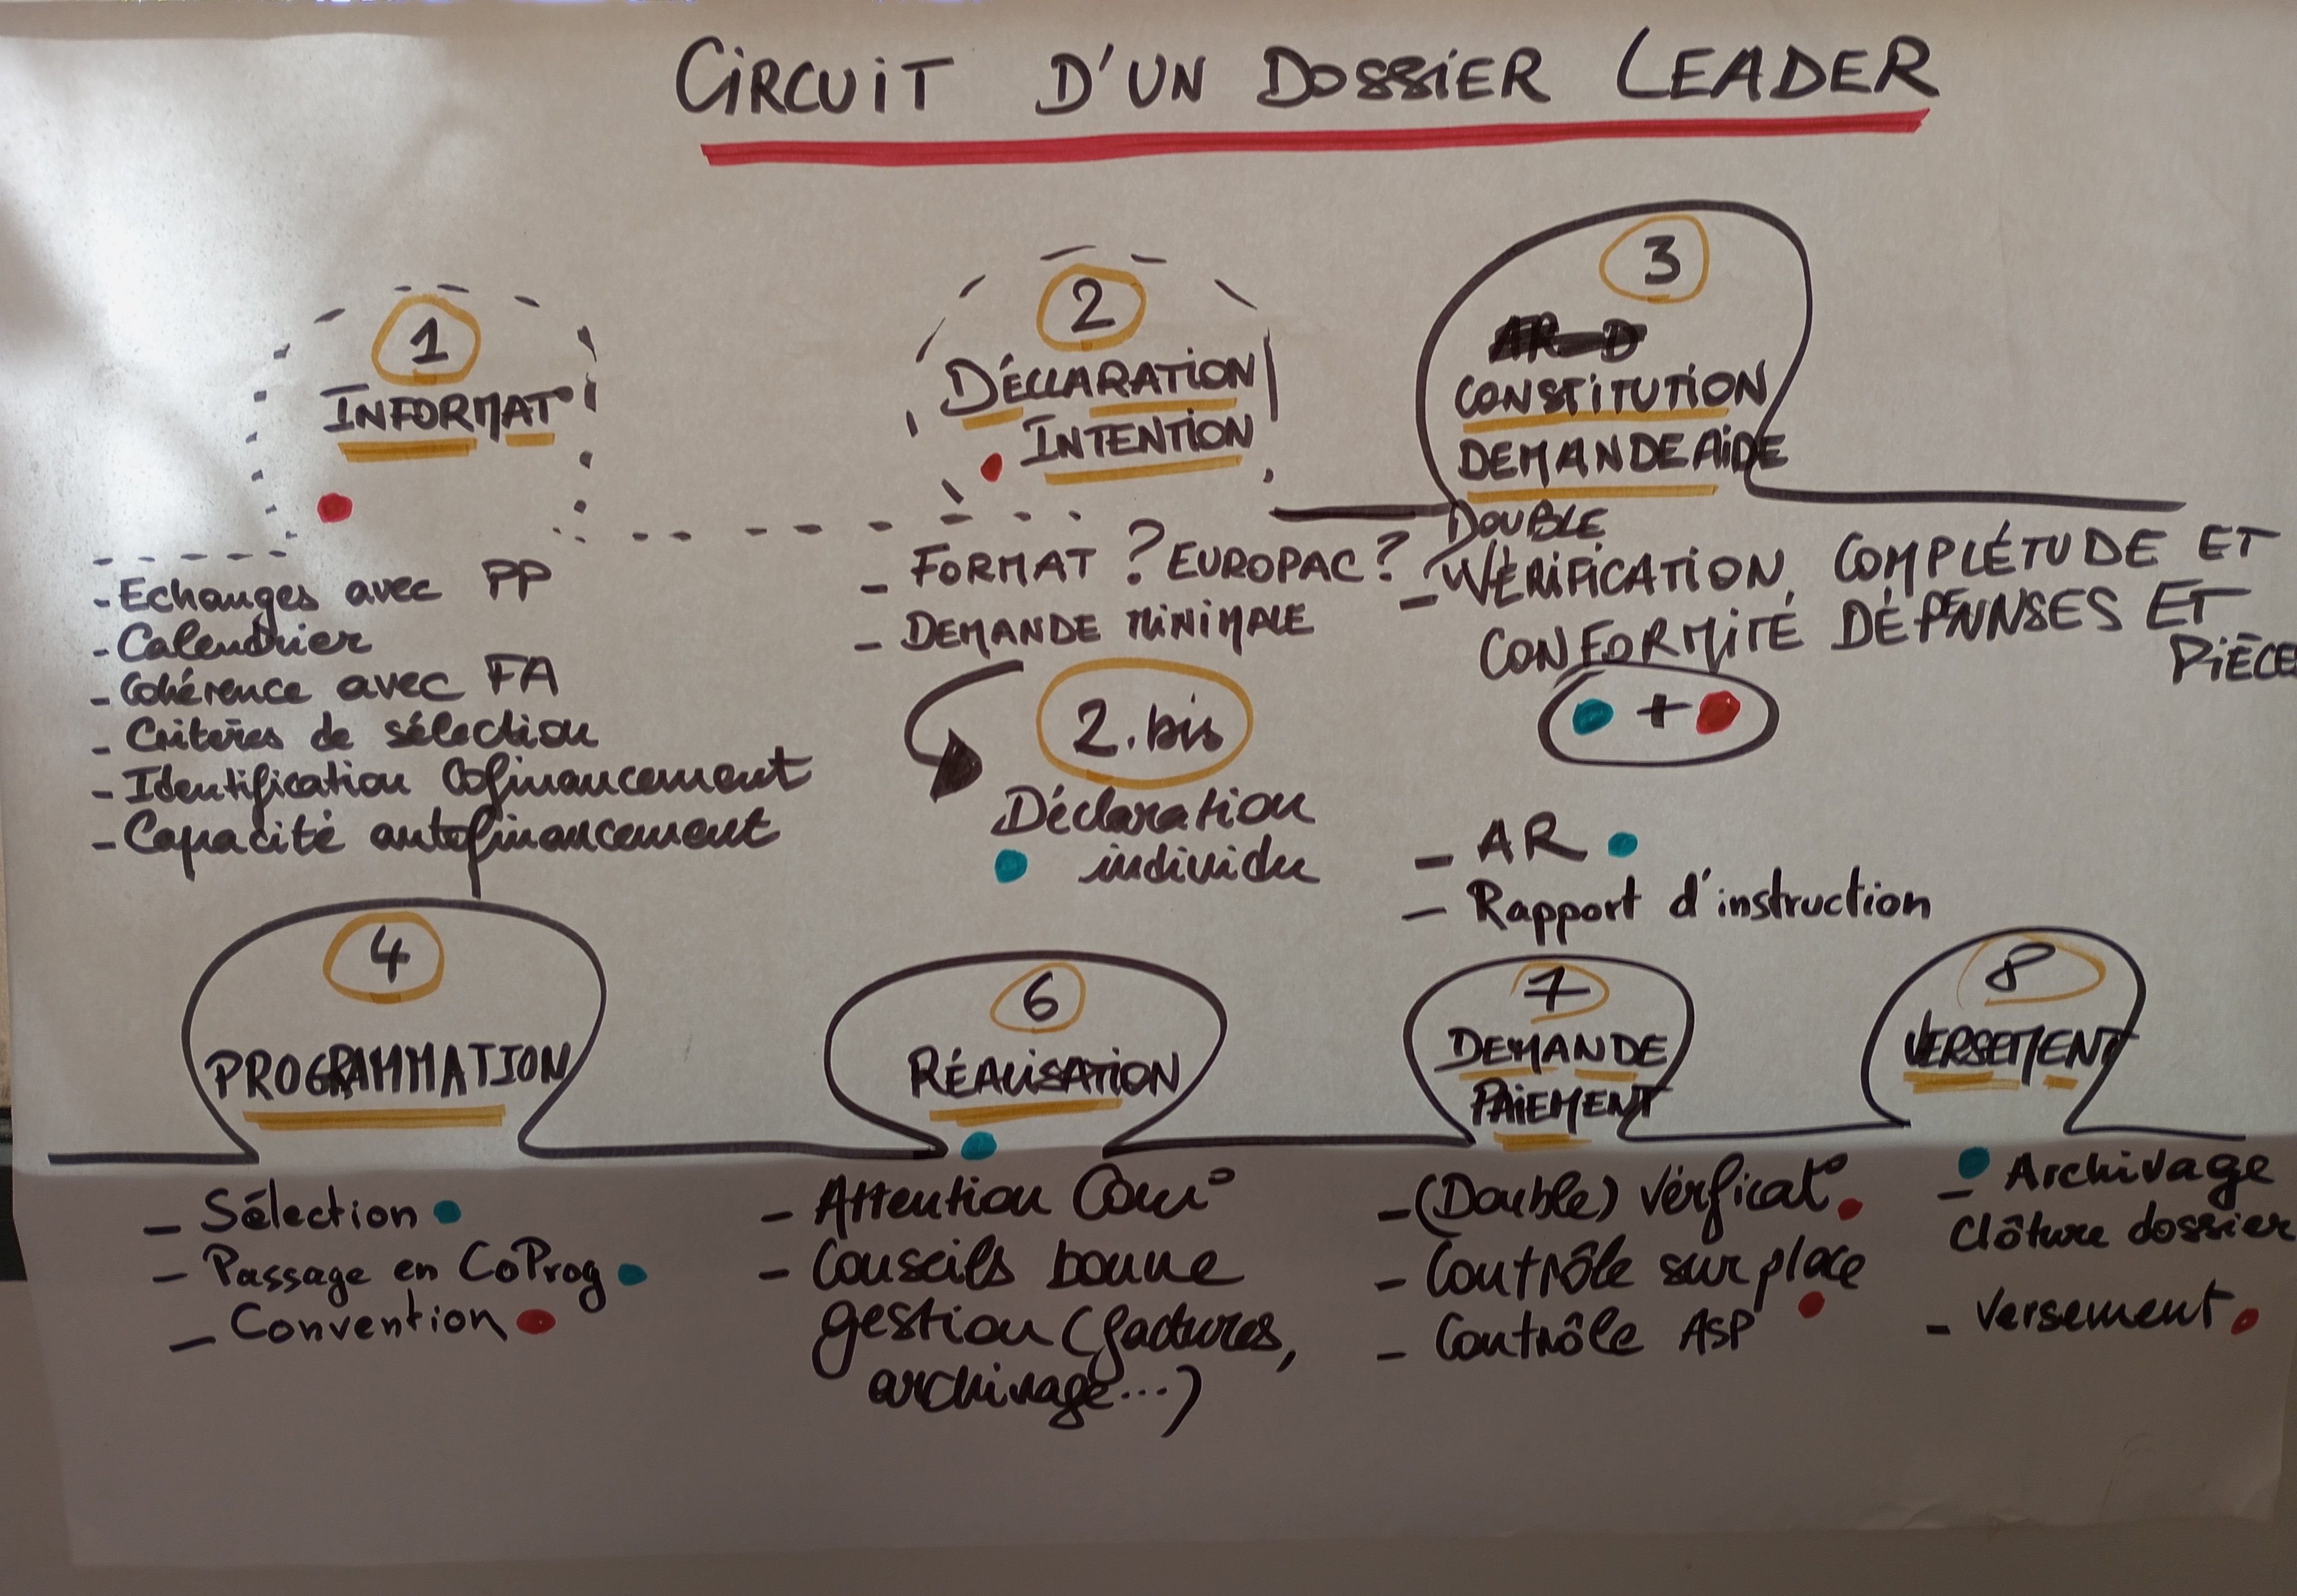 CIRCUIT D'UN DOSSIER LEADER
1
INFORMAT°
- Echanges avec PP
- Calendrier
- Cohérence avec FA
- Critères de sélection
- Identification Cofinancement
- Capacité autofinancement
2
DÉCLARATION
INTENTION
- FORMAT ? EUROPAC ?
- DEMANDE MINIMALE
2.bis
Déclaration
individu
3
CONSTITUTION
DEMANDE AIDE
DOUBLE
- VÉRIFICATION, COMPLÉTUDE ET
CONFORMITÉ DÉPENNSES ET
PIÈCE
+
- AR
- Rapport d'instruction
4
PROGRAMMATION
- Sélection
- Passage en CoProg
- Convention
6
RÉALISATION
- Attention Com°
- Conseils bonne
gestion (factures,
archivage...)
7
DEMANDE
PAIEMENT
- (Double) Vérficat°
- Contrôle sur place
- Contrôle ASP
8
VERSEMENT
- Archivage
Clôture dossier
- Versement